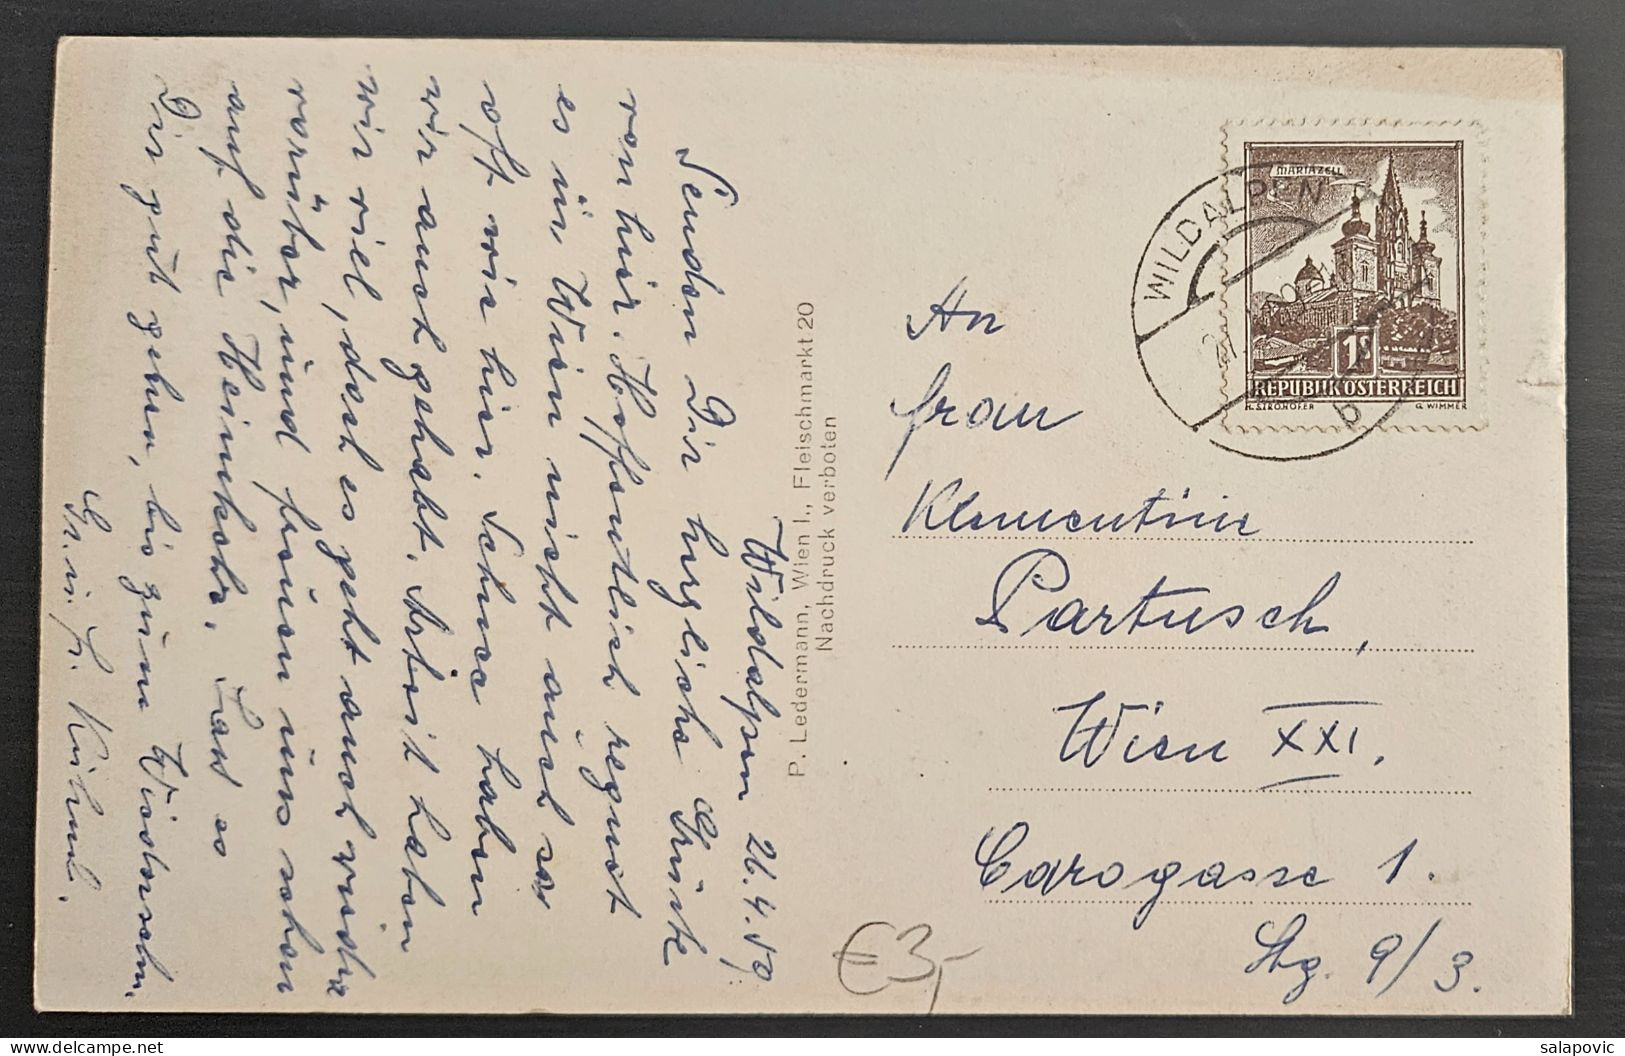 Wildalpen 26.4.59
Senden Dir herzliche Grüße
von hier. Hoffentlich regnet
es in Wien nicht auch so
oft wie hier. Schnee haben
wir auch gehabt. Arbeit haben
wir viel, doch es geht auch wieder
vorüber, und freuen uns schon
auf die Heimkehr. Lass es
Dir gut gehen, bis zum Wiedersehn.
Gr. u.
P. Ledermann, Wien I., Fleischmarkt 20
Nachdruck verboten
WILDALPEN
b
MARIAZELL
1S
REPUBLIK ÖSTERREICH
H. STROHOFER G. WIMMER
An
Frau
Klementine
Partusch,
Wien XXI.
Carogasse 1.
Stg. 9/3.
€3,-
salapovic